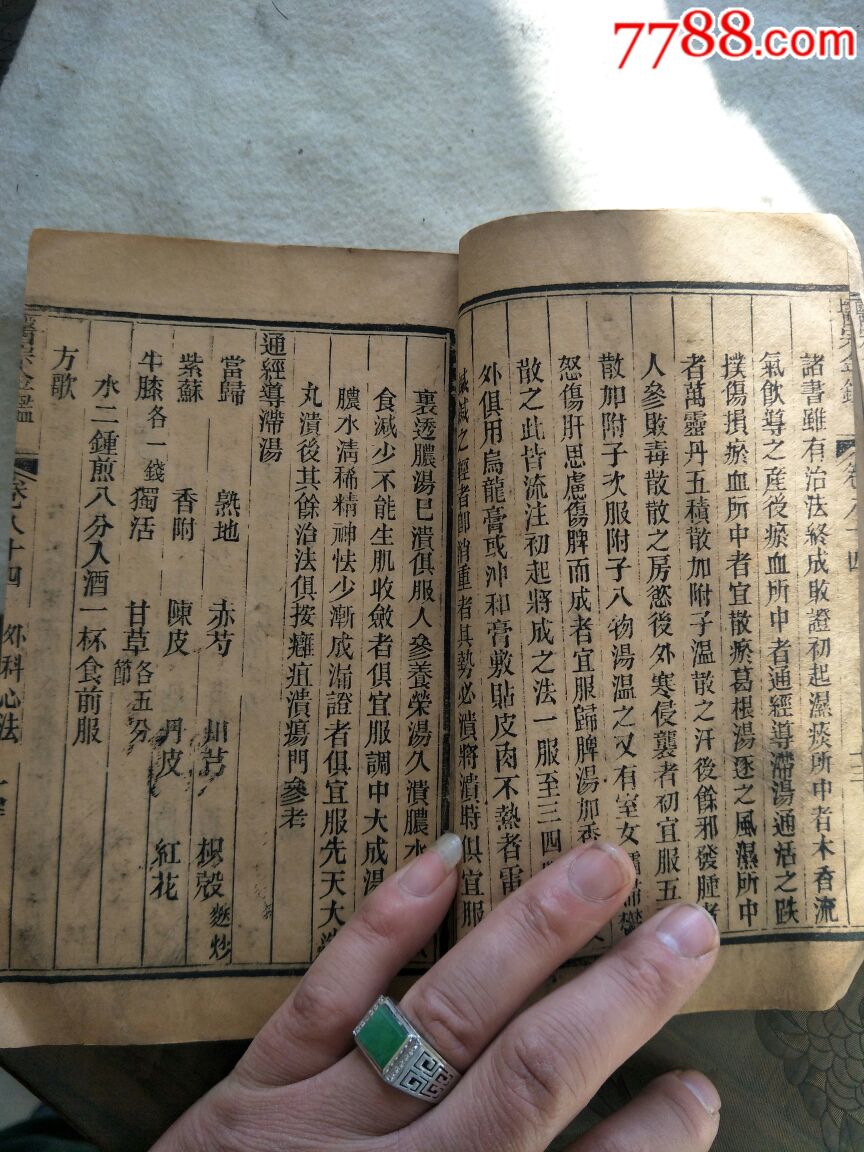 7788.com
諸書雖有治法終成敗證初起濕痰所中者木香流
氣飲導之產後瘀血所中者通經導滯湯通活之跌
撲傷損瘀血所中者宜散瘀葛根湯逐之風濕所中
者萬靈丹五積散加附子溫散之汗後餘邪發腫者
人參敗毒散散之房慾後外寒侵襲者初宜服五
散加附子次服附子八物湯溫之又有室女
怒傷肝思慮傷脾而成者宜服歸脾湯加香
散之此皆流注初起將成之法一服至三四
外俱用烏龍膏或沖和膏敷貼皮肉不熱者雷
減之輕者即消重者其勢必潰將潰時俱宜服
裏透膿湯已潰俱服人參養榮湯久潰膿水
食減少不能生肌收斂者俱宜服調中大成湯
膿水清稀精神怯少漸成漏證者俱宜服先天大
丸潰後其餘治法俱按癰疽潰瘍門參考
通經導滯湯
當歸 熟地 赤芍 川芎 枳殼麩炒
紫蘇 香附 陳皮 丹皮 紅花
牛膝各一錢 獨活 甘草節各五分
水二鍾煎八分入酒一杯食前服
方歌
醫宗金鑑 卷八十四 外科心法